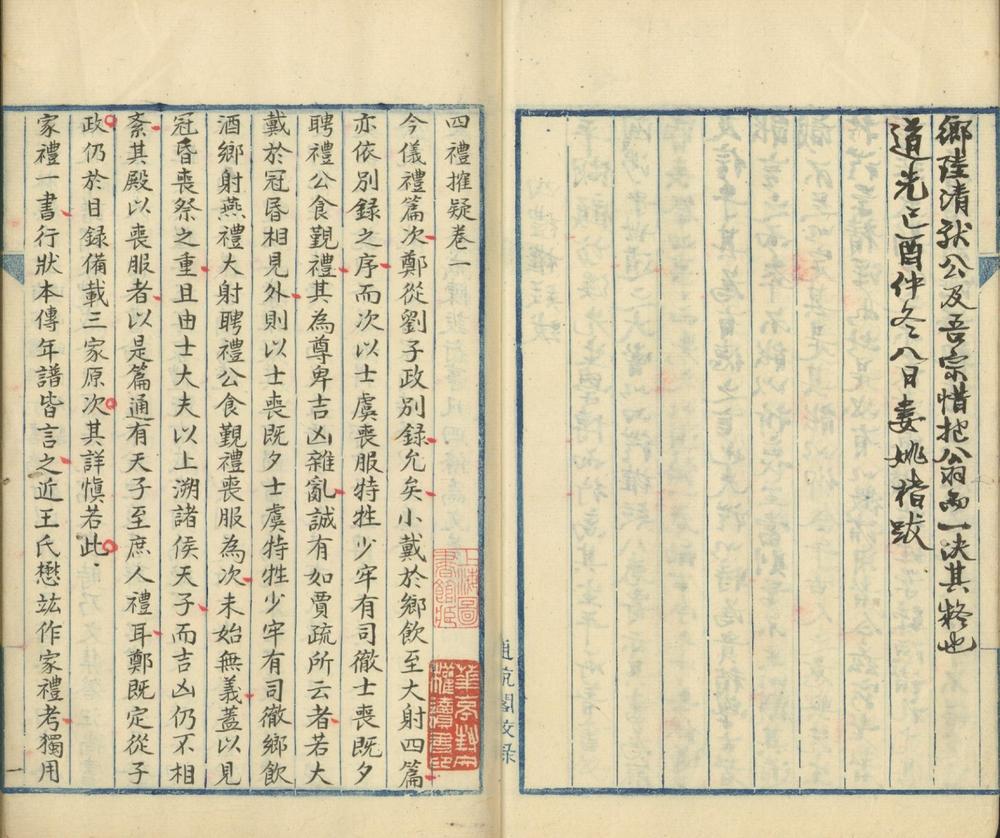 鄉陸清獻公及吾宗惜抱翁而一決其矜也
道光己酉仲冬八日婁姚椿跋
四禮榷疑卷一
今儀禮篇次鄭從劉子政別録允矣小戴於鄉飲至大射四篇
亦依別録之序而次以士虞喪服特牲少牢有司徹士喪既夕
聘禮公食覲禮其為尊卑吉凶雜亂誠有如賈疏所云者若大
戴於冠昏相見外則以士喪既夕士虞特牲少牢有司徹鄉飲
酒鄉射燕禮大射聘禮公食覲禮喪服為次未始無義蓋以見
冠昏喪祭之重且由士大夫以上溯諸侯天子而吉凶仍不相
紊其殿以喪服者以是篇通有天子至庶人禮耳鄭既定從子
政仍於目録備載三家原次其詳慎若此
家禮一書行狀本傳年譜皆言之近王氏懋竑作家禮考獨用
一
上海圖書館藏
通介閣校录